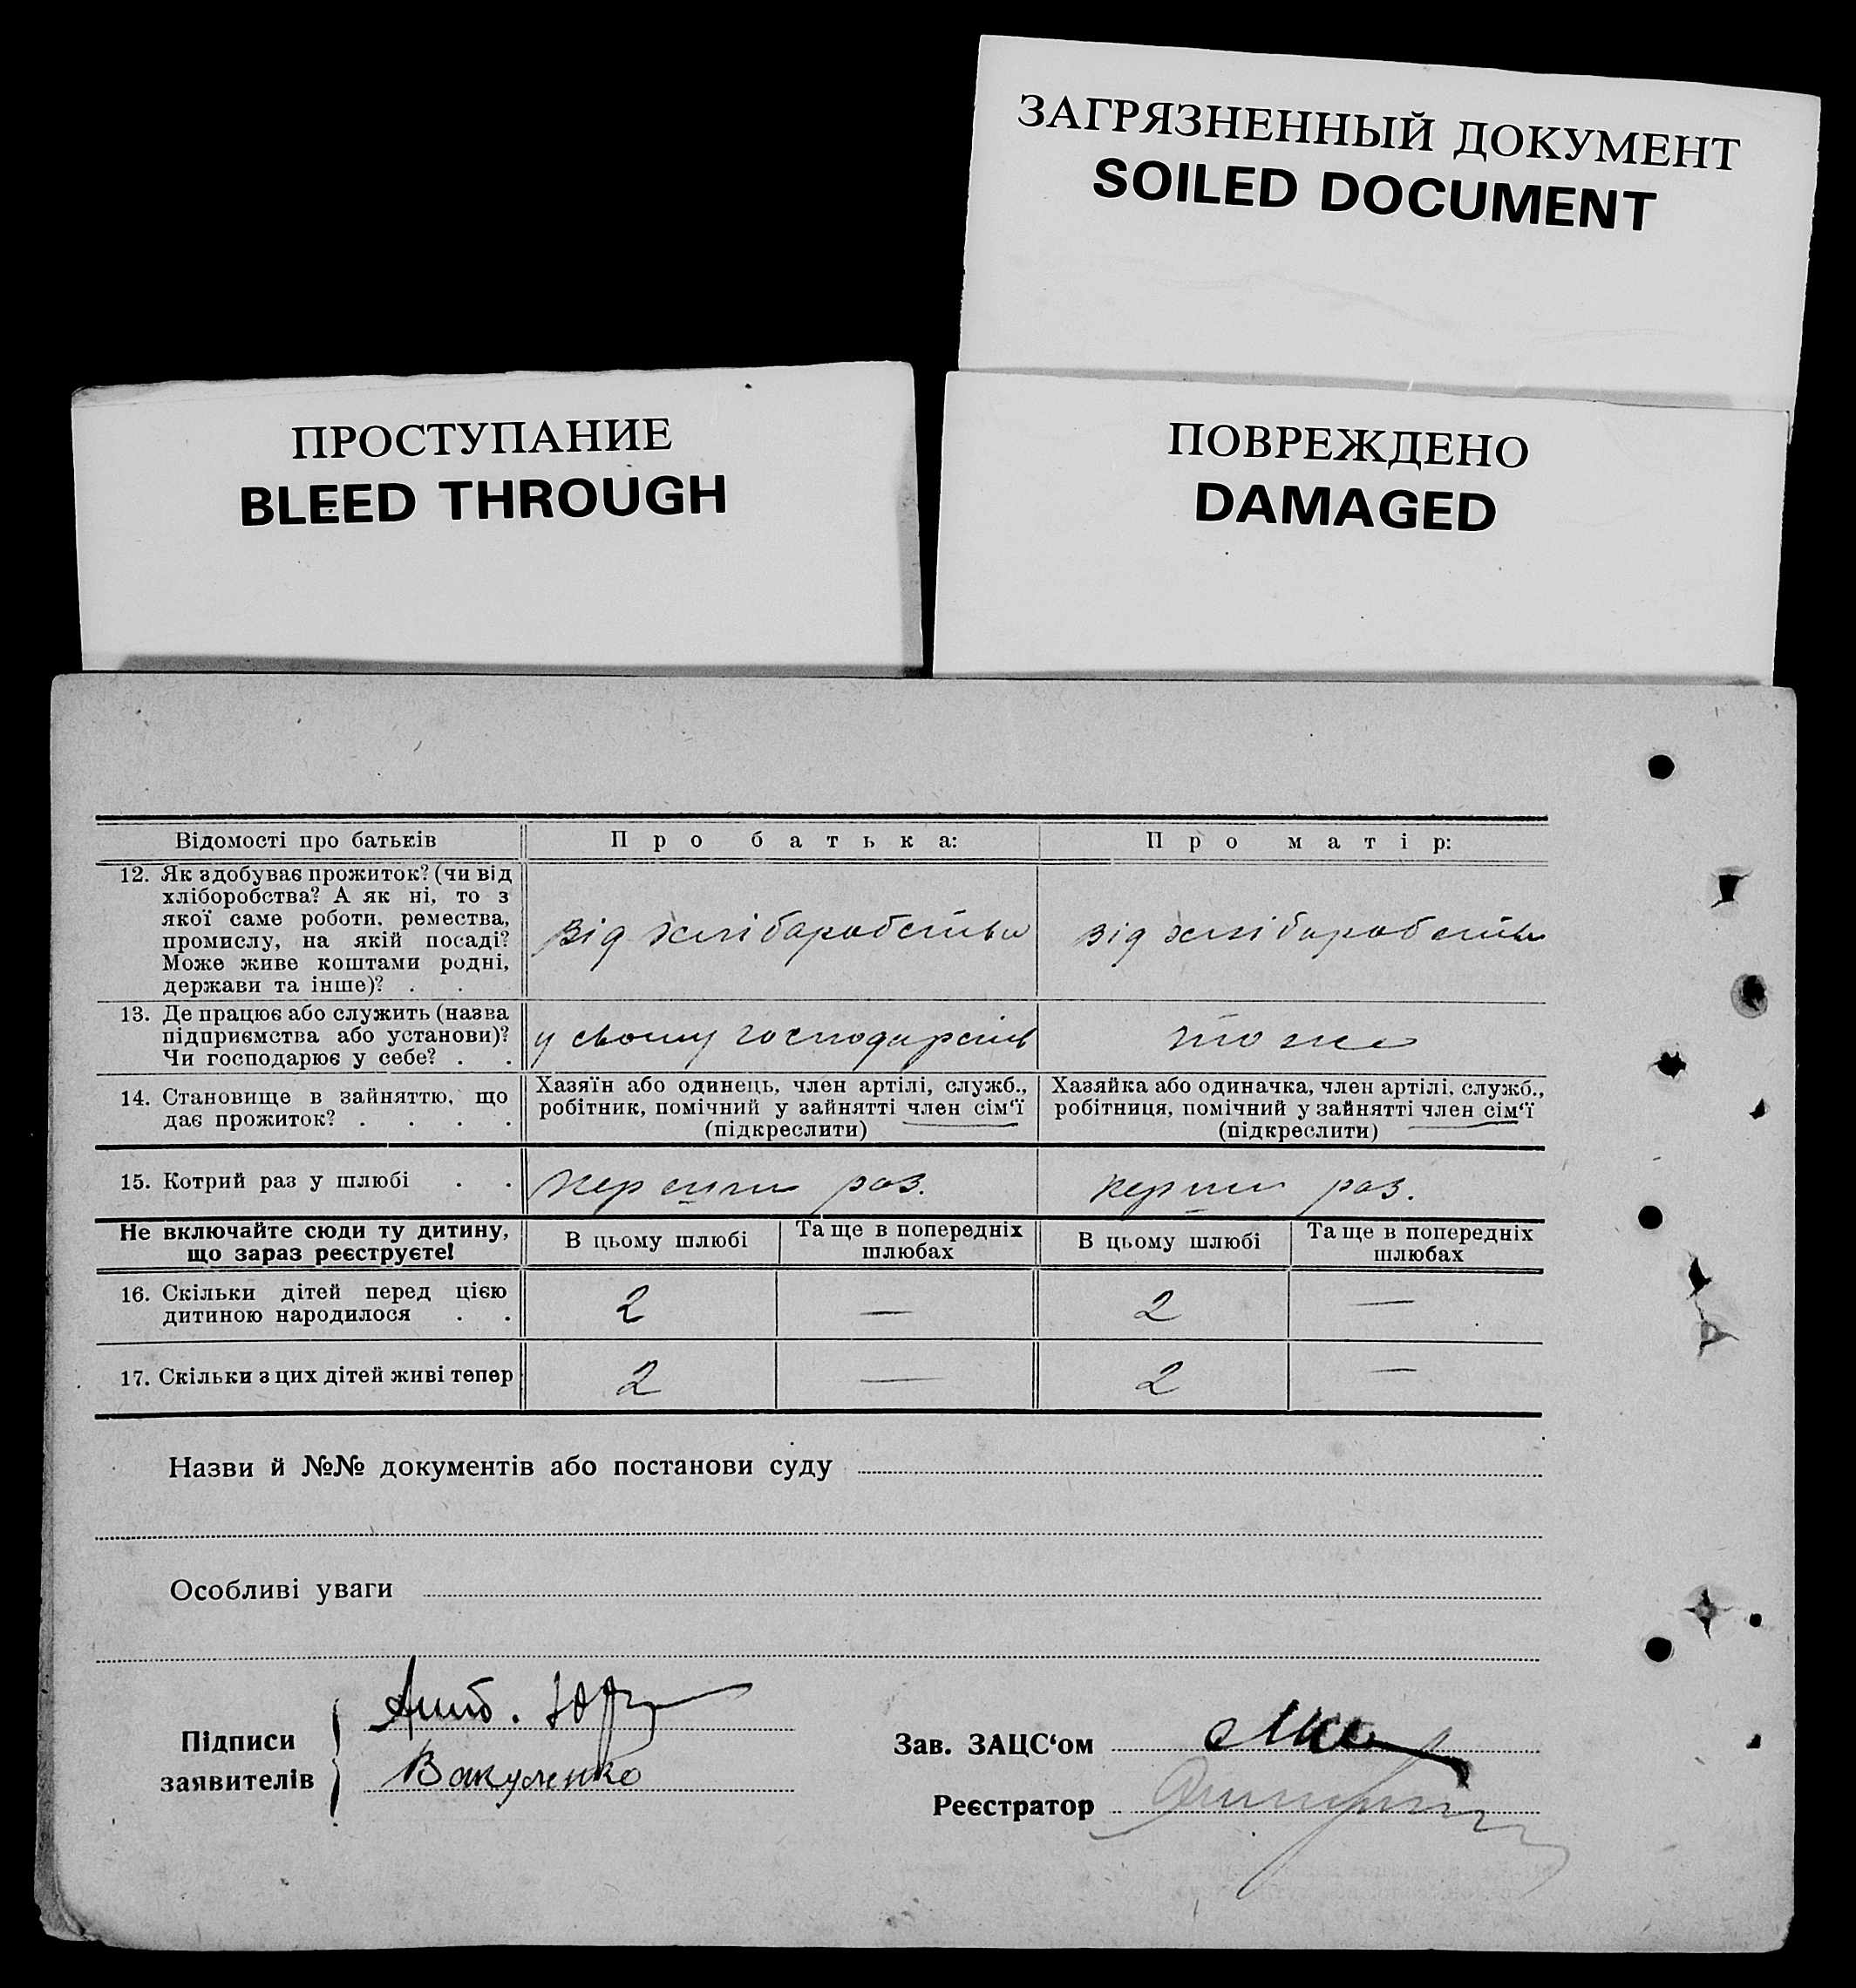 ЗАГРЯЗНЕННЫЙ ДОКУМЕНТ
SOILED DOCUMENT
ПРОСТУПАНИЕ
BLEED THROUGH
ПОВРЕЖДЕНО
DAMAGED
Відомості про батьків
Про батька:
Про матір:
12. Як здобуває прожиток? (чи від
хліборобства? А як ні, то з
якої саме роботи, ремества,
промислу, на якій посаді?
Може живе коштами родні,
держави та інше)? . .
від хлібаробства
від хлібаробства
13. Де працює або служить (назва
підприємства або установи)?
Чи господарює у себе? . .
у свому господарств
тоже
14. Становище в зайняттю, що
дає прожиток? . . . .
Хазяїн або одинець, член артілі, служб.,
робітник, помічний у зайнятті член сім‘ї
(підкреслити)
Хазяйка або одиначка, член артілі, служб.,
робітниця, помічний у зайнятті член сім‘ї
(підкреслити)
15. Котрий раз у шлюбі . .
перший раз.
перши раз.
Не включайте сюди ту дитину,
що зараз реєструєте!
В цьому шлюбі
Та ще в попередніх
шлюбах
В цьому шлюбі
Та ще в попередніх
шлюбах
16. Скільки дітей перед цією
дитиною народилося . .
2
—
2
—
17. Скільки з цих дітей живі тепер
2
—
2
—
Назви й №№ документів або постанови суду
Особливі уваги
Підписи
заявителів
Вакуленко
Зав. ЗАЦС‘ом
Реєстратор